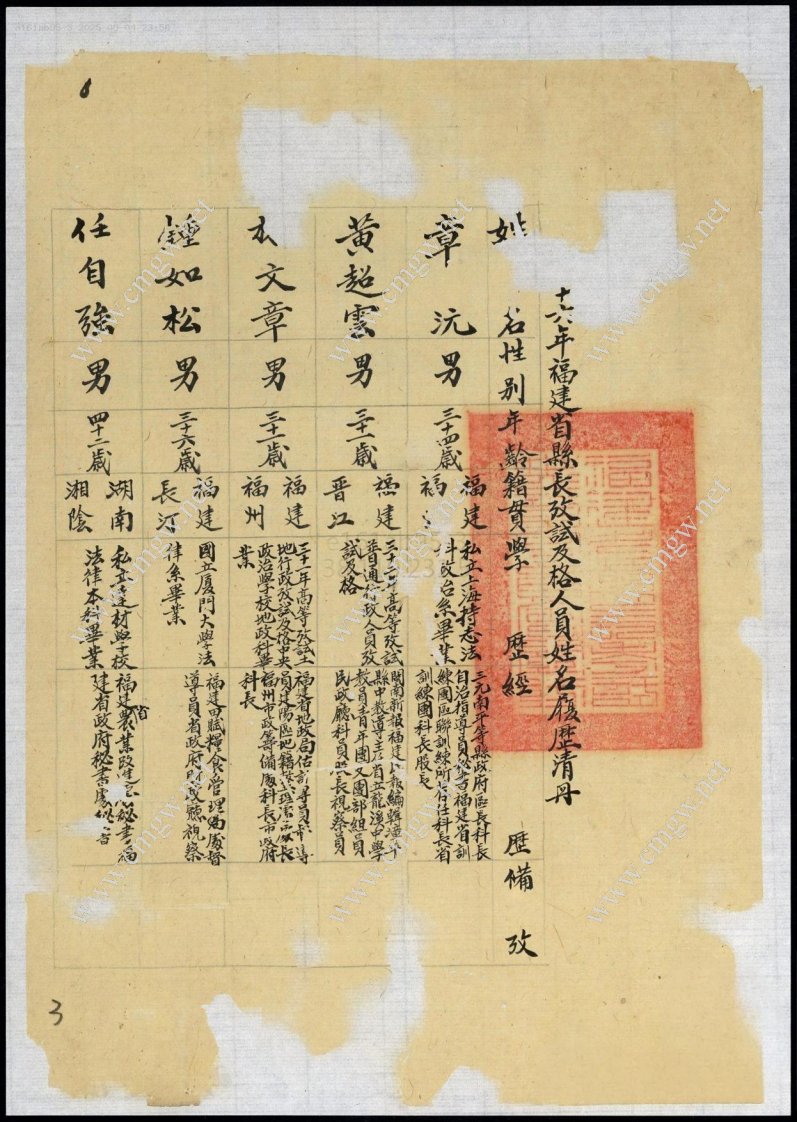 十六年福建省縣長攷試及格人員姓名履歷清丹
姓名 性別 年齡 籍貫 學歷 經歷 備攷
章沅 男 三十四歲 福建福 私立上海持志法科政治系畢業 三元南平等縣政府區長科長自治指導員祕書福建省訓練團區聯訓練所主任科長省訓練團科長股長
黃超雲 男 三十一歲 福建晉江 三十二年高等攷試普通行政人員攷試及格 閩南新報福建日報編輯漳平縣中教導主任省立龍溪中學教員青年團支團部組員民政廳科員照長視察員
文章 男 三十一歲 福建福州 三十一年高等攷試土地行政攷試及格中央政治學校地政科畢業 福建省地政局估計專員督導員建陽區地籍整理處處長福州市政籌備處科長市政府科長
鍾如松 男 三十六歲 福建長汀 國立厦門大學法律系畢業 福建田賦糧食管理局處督導員省政府財政廳視察
任自強 男 四十二歲 湖南湘陰 私立達材學校法律本科畢業 福建省農業改進處祕書福建省政府祕書處祕書
3
www.cmgw.net